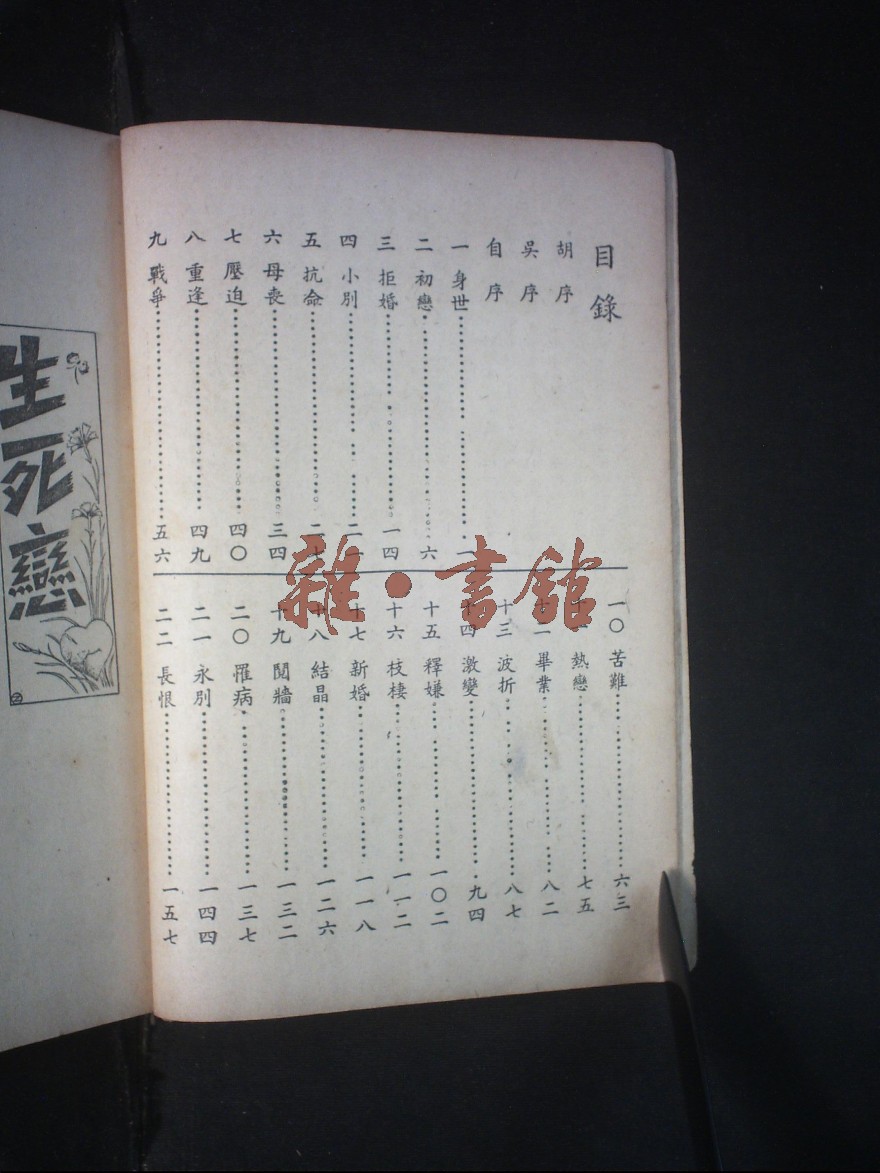 目錄
胡序
吳序
自序
一 身世 一
二 初戀 六
三 拒婚 一四
四 小別 二一
五 抗命
六 母喪 三四
七 壓迫 四〇
八 重逢 四九
九 戰爭 五六
一〇 苦難 六三
熱戀 七五
畢業 八二
十三 波折 八七
十四 激變 九四
十五 釋嫌 一〇二
十六 枝棲 一一二
十七 新婚 一一八
十八 結晶 一二六
十九 鬩牆 一三二
二〇 罹病 一三七
二一 永別 一四四
二二 長恨 一五七
生死戀
雜·書館